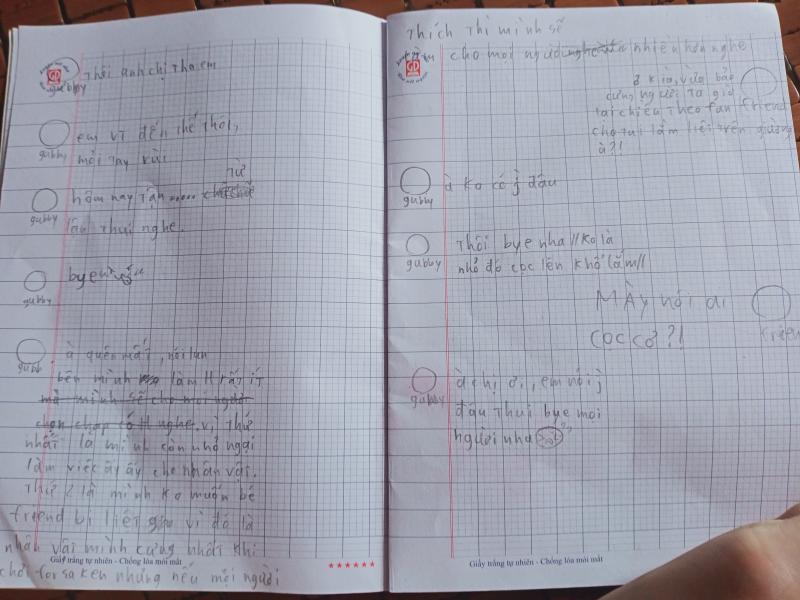 Thôi anh chị tha em
gubby
em vì đến thế thôi,
mỏi tay rùi
gubby
hôm nay tận từ
lâu thui nghe.
gubby
bye
gubby
à quên mất, nói lun
gubb
bên mình làm H rất ít
mà mình sẽ cho mọi người
chọn chap có H nghe, vì thứ
nhất là mình còn nhỏ ngại
làm việc ấy ấy cho nhân vật.
Thứ 2 là mình ko muốn bé
friend bị liệt vì đó là
nhân vật mình cưng nhất khi
chơi forsaken nhưng nếu mọi người
Giấy trắng tự nhiên - Chống lóa mỏi mắt
★★★★★★
Thích thì mình sẽ
cho mọi người nhiên hơn nghe
ở kìa, vừa bảo
cưng người ta giờ
lại chiều theo fan friend
cho tui nằm liệt trên giường
à?!
à ko có j đâu
gubby
Thôi bye nha //ko là
nhỏ đó cọc lên khổ lắm//
gubby
MÀY nói ai
cọc cơ?!
friend
à chị ơi, em nói j
gubby
đâu thui bye mọi
người nha
Giấy trắng tự nhiên - Chống lóa mỏi mắt